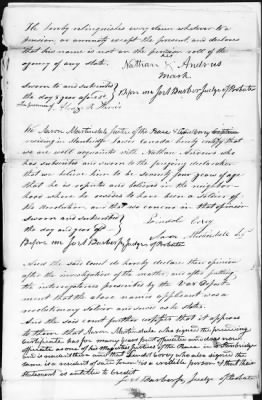 He hereby relinquishes every claim whatever to a
pension or annuity except the present and declares
that his name is not on the pension roll of the
agency of any state.
his
Nathan X Andrus
mark
Sworn to and subscribed
the day & year aforesaid
Before me Joel Barber Judge of Probate
We Aaron Martindale Justice of the Peace &
residing in hereby certify that
we are well acquainted with Nathan Andrus who
has subscribed and sworn to the foregoing declaration
that we believe him to be seventy four years of age
that he is reputed and believed in the neighbor-
hood where he resides to have been a soldier of
the Revolution, and that we concur in that opinion
Sworn and subscribed
the day and year aforesaid
Before me Joel Barber Judge of Probate
Aaron Martindale
And the said court do hereby declare their opinion
after the investigation of the matter and after putting
the interrogatories prescribed by the War Depart-
ment that the above named applicant was a
revolutionary soldier and served as he states.
And the said court further certifies that it appears
to them that Aaron Martindale who signed the preceding
certificate has for many years past officiated and does now
officiate as one of his Majesty's Justices of the Peace in
and that who also signed the
same is a resident of and is a credible person & that their
statement is entitled to credit
Joel Barber Judge of Probate